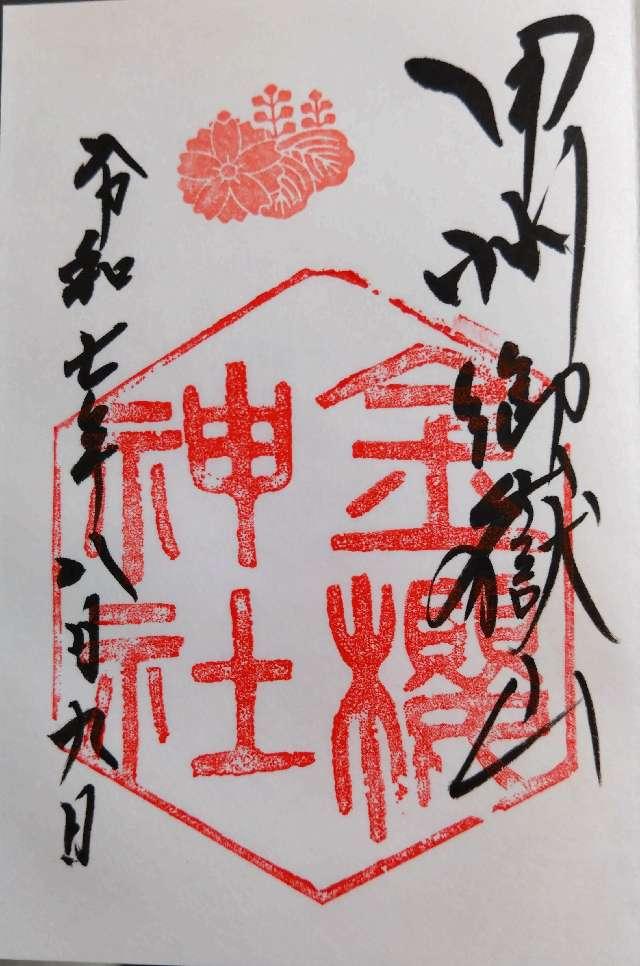 甲州御嶽山
金櫻
神社
令和七年八月九日